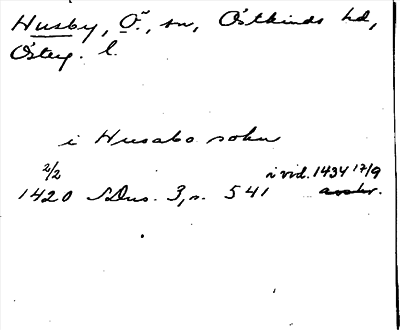 Husby, Ö., sn, Östkinds hd,
Österg. l.
i Husabo sokn
2/2 i vid. 1434 17/9
1420 SDns. 3, s. 541 avskr.